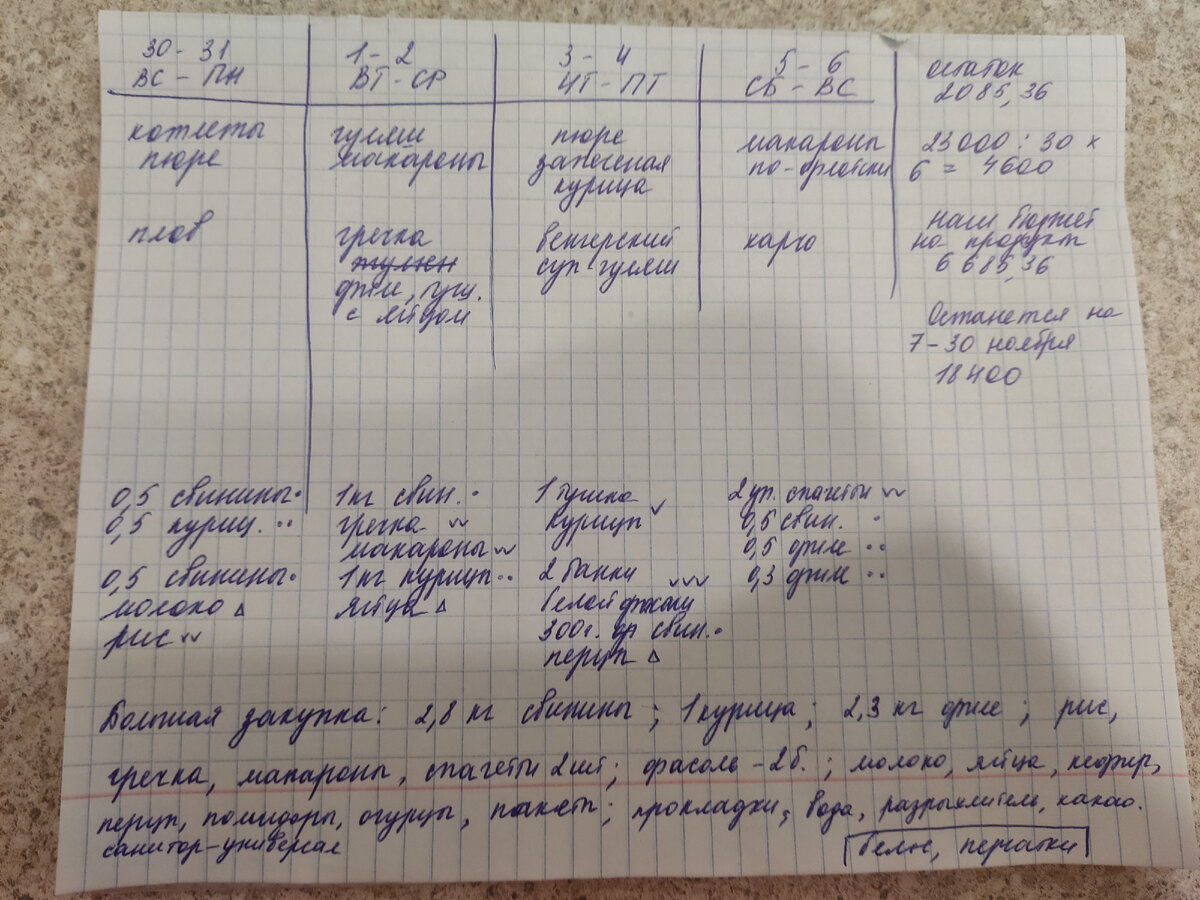 30 - 31
ВС - ПН
котлеты
пюре
плов
1 - 2
ВТ - СР
гуляш
макароны
гречка
филе, гуш.
с яйцом
3 - 4
ЧТ - ПТ
пюре
запеченая
курица
венгерский
суп гуляш
5 - 6
СБ - ВС
макароны
по-флотски
карчо
остаток
2085,36
23000 : 30 ×
6 = 4600
наш бюджет
на продукт
6 685,36
Останется на
7 - 30 ноября
18400
0,5 свинины
0,5 куриц.
0,5 свинины
молоко
рис
1кг свин.
гречка
макароны
1кг куриц
яйца
1 тушка
куриц
2 банки
белой фасоли
300г. свин.
перец
2 уп. спагетти
0,5 свин.
0,5 филе
0,3 филе
Большая закупка: 2,8 кг свинины; 1 курица; 2,3 кг филе; рис,
гречка, макароны, спагетти 2 шт; фасоль - 2 б.; молоко, яйца, кефир,
перец, помидоры, огурцы, пакет; прокладки, вода, разрыхлитель, какао.
санитор-универсал
белье, перчатки